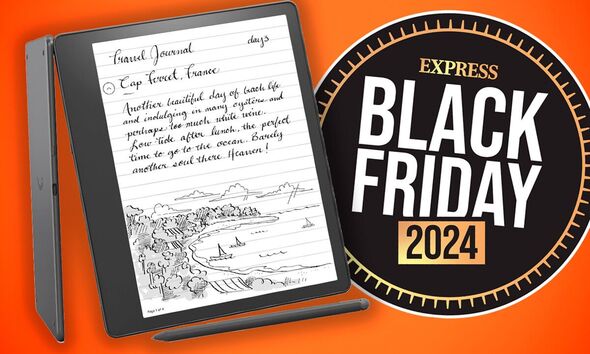 Travel Journal days
Cap Ferret, France
Another beautiful day of beach life
and indulging in many oysters and
perhaps too much white wine.
Low tide after lunch, the perfect
time to go to the ocean. Barely
another soul there. Heaven!
Page 1 of 4
EXPRESS
BLACK
FRIDAY
2024